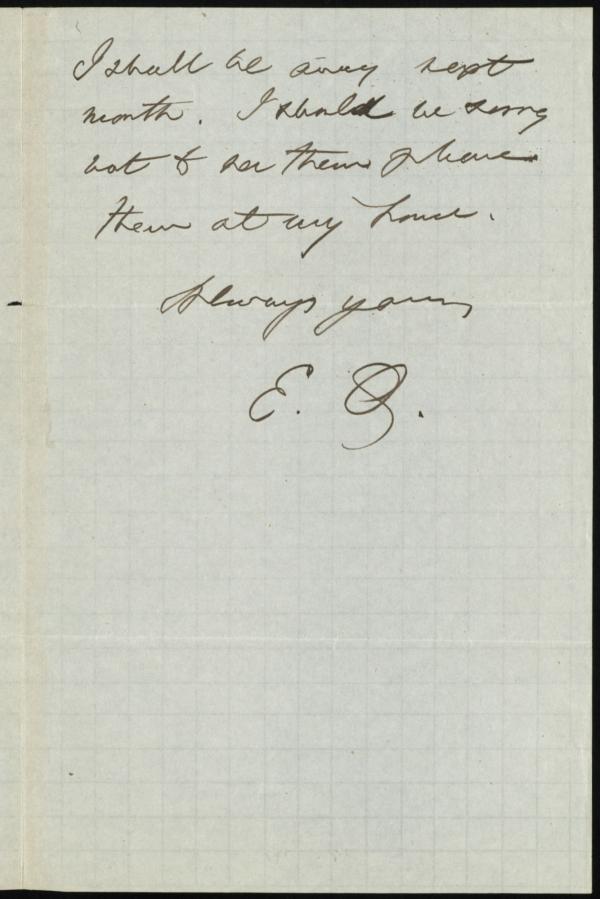 I shall be away next
month. I should be sorry
not to see them & have
them at my house.
Always yours,
E. Q.